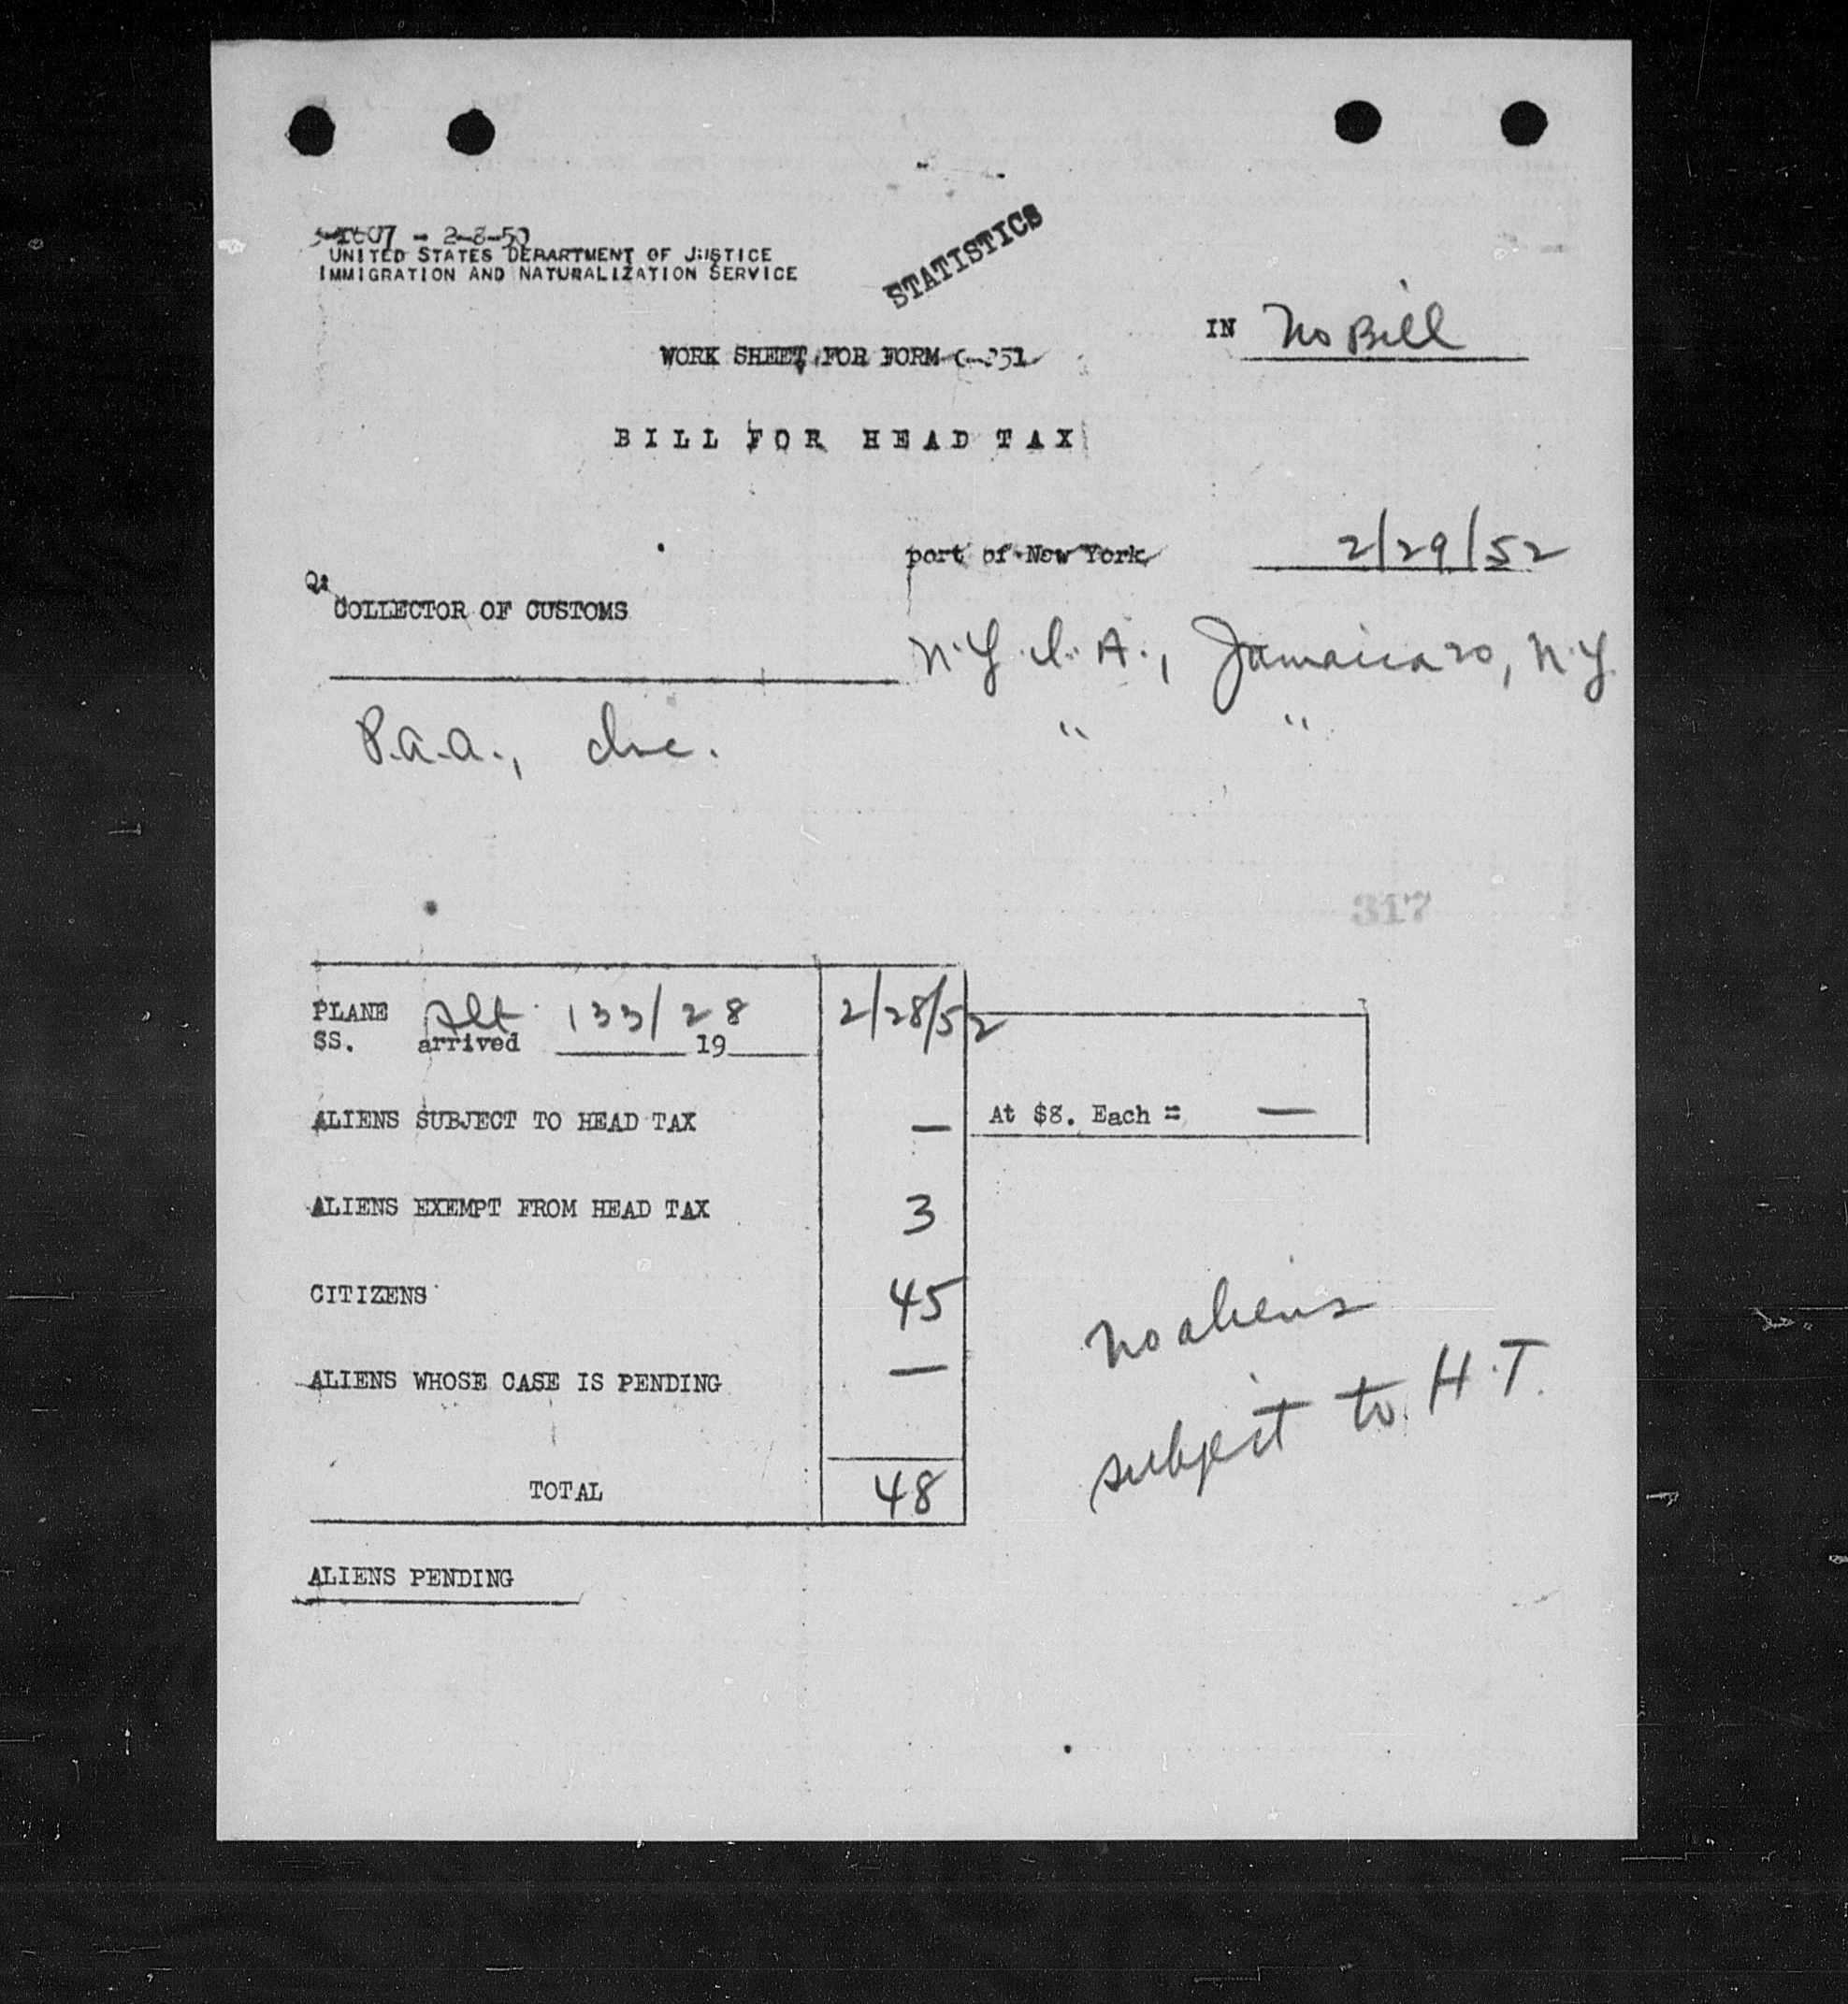 2-8-50
UNITED STATES DEPARTMENT OF JUSTICE
IMMIGRATION AND NATURALIZATION SERVICE
STATISTICS
IN No Bill
WORK SHEET FOR FORM
BILL FOR HEAD TAX
port of New York 2/29/52
COLLECTOR OF CUSTOMS
N.Y.I.A., Jamaica 20, N.Y.
P.A.A., Inc. " "
317
PLANE 133/28 2/28/52
SS. arrived 19
ALIENS SUBJECT TO HEAD TAX — At $8. Each = —
ALIENS EXEMPT FROM HEAD TAX 3
CITIZENS 45
No aliens
subject to H.T.
ALIENS WHOSE CASE IS PENDING —
TOTAL 48
ALIENS PENDING